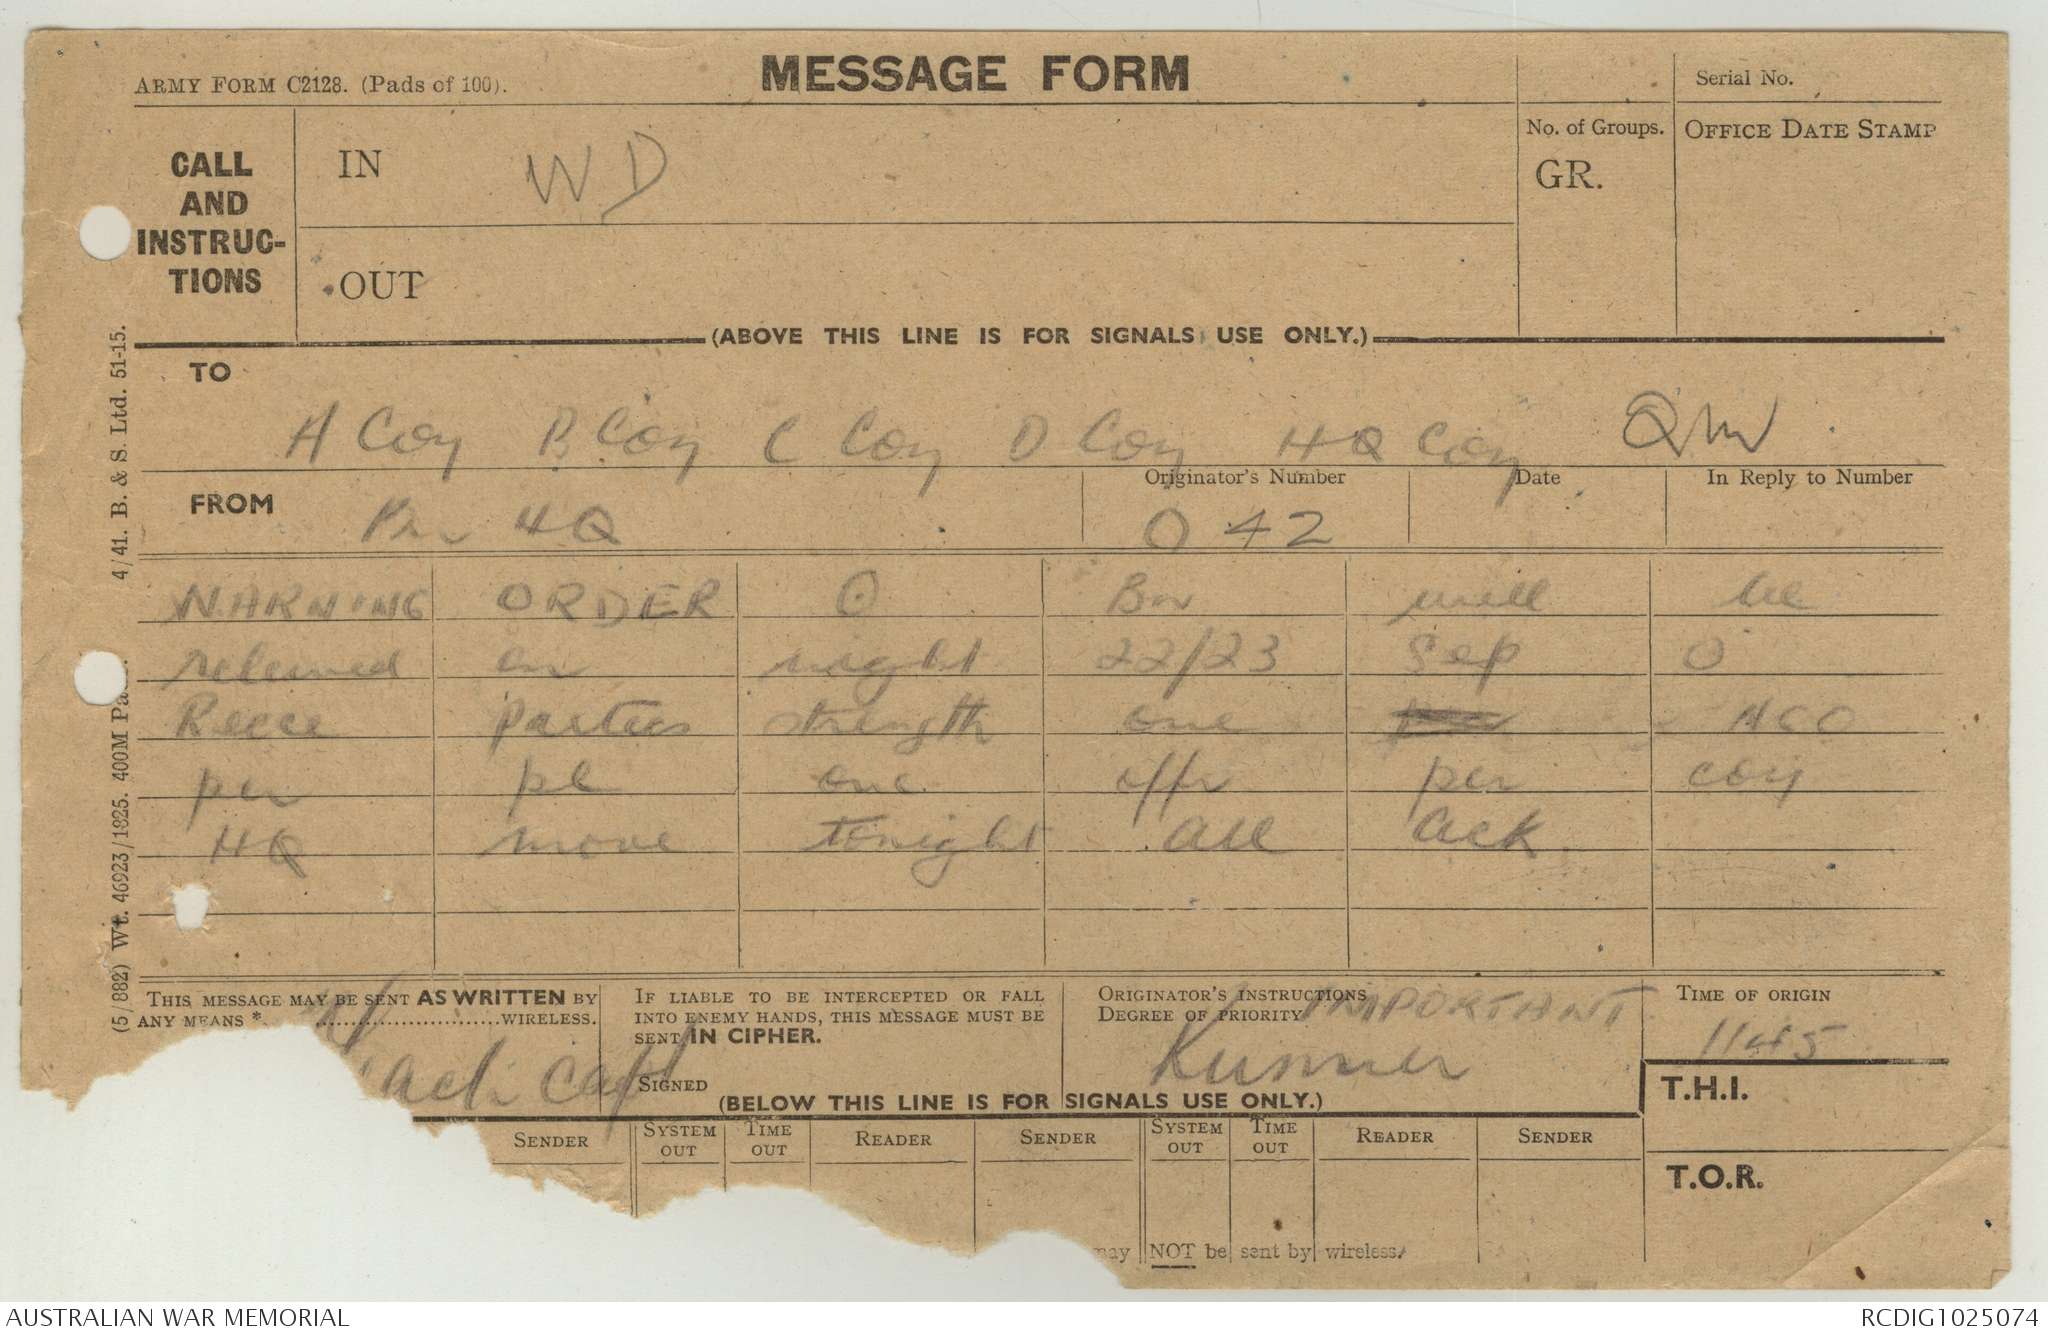 ARMY FORM C2128. (Pads of 100).
MESSAGE FORM
Serial No.
CALL AND INSTRUC-TIONS
IN WD
No. of Groups.
GR.
OFFICE DATE STAMP
OUT
(ABOVE THIS LINE IS FOR SIGNALS USE ONLY.)
TO
A Coy B Coy C Coy D Coy HQ Coy QM
FROM Bn HQ
Originator's Number O 42
Date
In Reply to Number
WARNING ORDER O Bn will be
relieved on night 22/23 Sep O
Recce Parties strength one NCO
per pl one offr per coy
HQ move tonight all ack
THIS MESSAGE MAY BE SENT AS WRITTEN BY
ANY MEANS *..............................WIRELESS.
Capt
IF LIABLE TO BE INTERCEPTED OR FALL
INTO ENEMY HANDS, THIS MESSAGE MUST BE
SENT IN CIPHER.
SIGNED
ORIGINATOR'S INSTRUCTIONS
DEGREE OF PRIORITY IMPORTANT
Runner
TIME OF ORIGIN
1145
(BELOW THIS LINE IS FOR SIGNALS USE ONLY.)
T.H.I.
SENDER SYSTEM OUT TIME OUT READER SENDER SYSTEM OUT TIME OUT READER SENDER
T.O.R.
may NOT be sent by wireless.
(5/882) Wt. 46923/1825. 400M Pa 4/41. B. & S. Ltd. 51-15.
AUSTRALIAN WAR MEMORIAL
RCDIG1025074